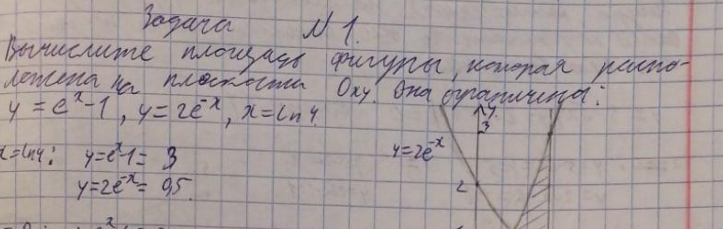 Задача N 1.
Вычислите площадь фигуры, которая распо-
ложена на плоскости Oxy. Она ограничена:
y = e^x-1, y = 2e^-x, x = ln4.
x=ln4: y=e^x-1= 3
y=2e^-x= 0,5.
y=2e^-x
y
3
2